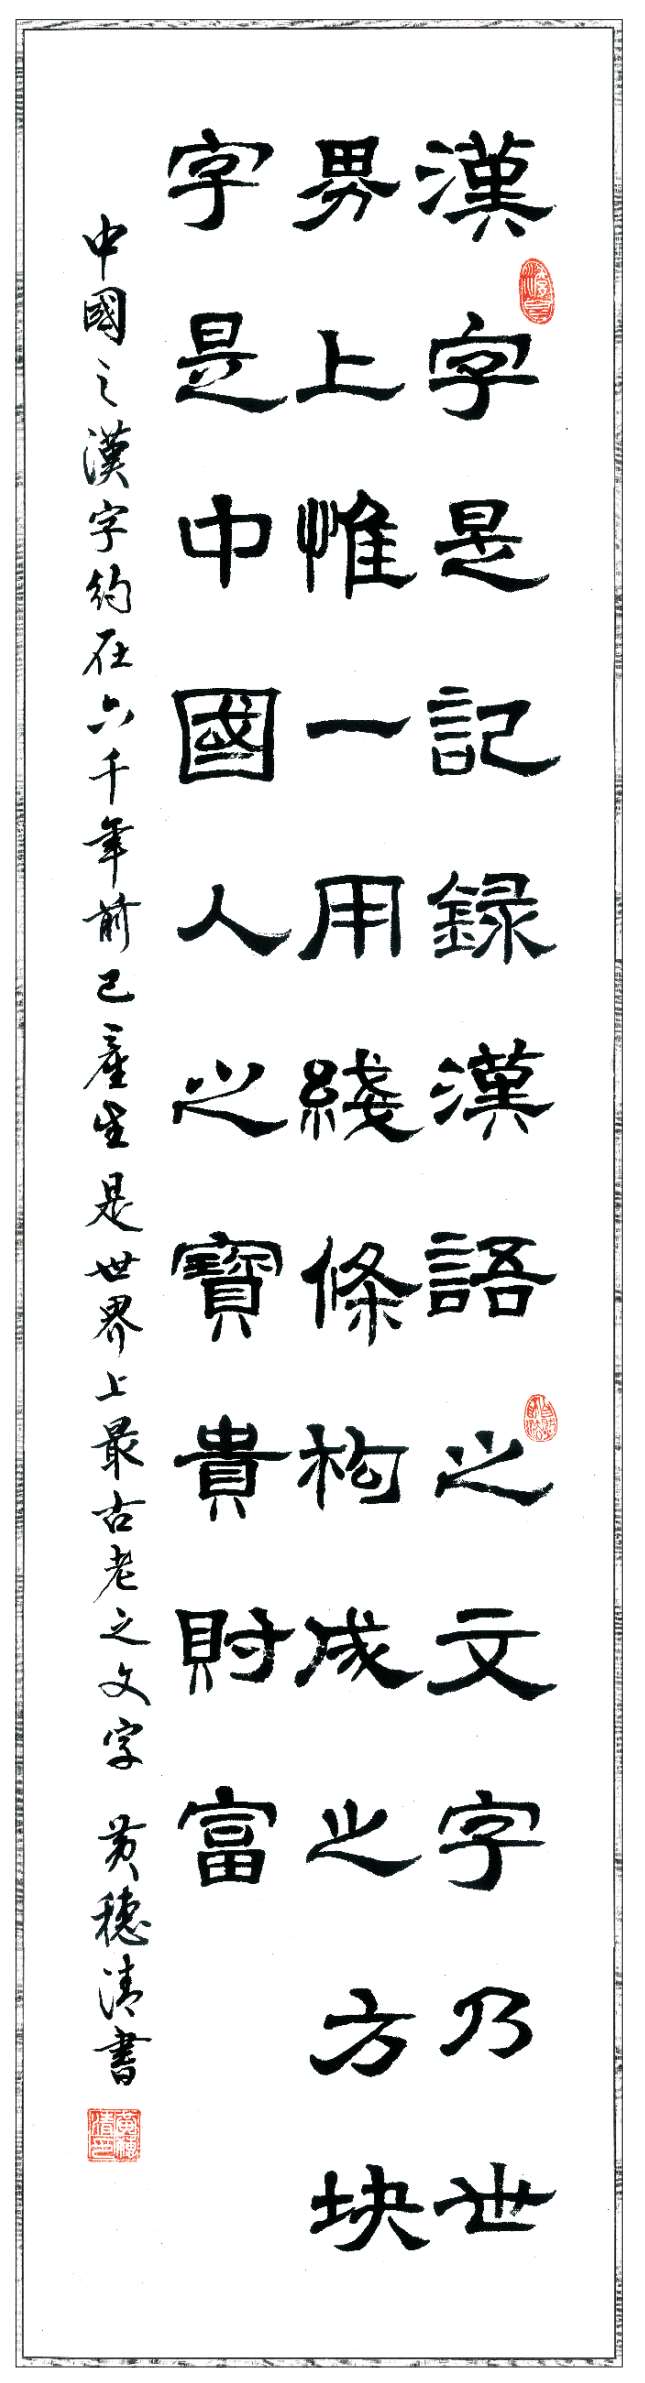 漢字是記録漢語之文字乃世
界上惟一用綫條构成之方块
字是中國人之寶貴財富
中國之漢字約在六千年前已產生是世界上最古老之文字 黄穗清書